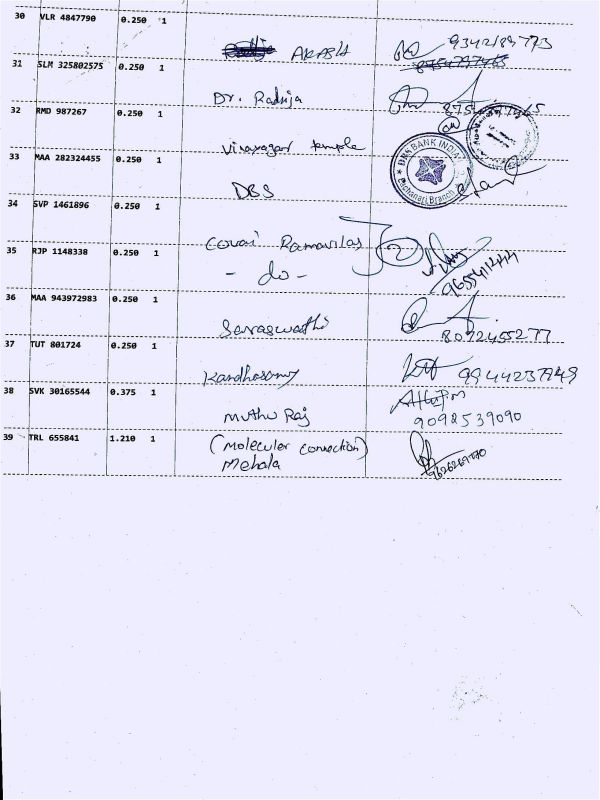 30 VLR 4847790 0.250 1
AKASH 9342189773
31 SLM 325802575 0.250 1
Dr. Radhija
32 RMD 987267 0.250 1
Vinayagar temple
33 MAA 282324455 0.250 1
DBS
DBS BANK INDIA
Branch
34 SVP 1461896 0.250 1
Covai Ramavilas
35 RJP 1148338 0.250 1
- do -
9655411444
36 MAA 943972983 0.250 1
Saraswathi 8072455277
37 TUT 801724 0.250 1
Kandhasamy 9944237949
38 SVK 30165544 0.375 1
Muthu Raj 9098539090
39 TRL 655841 1.210 1
(Moleculer connection)
Mehala